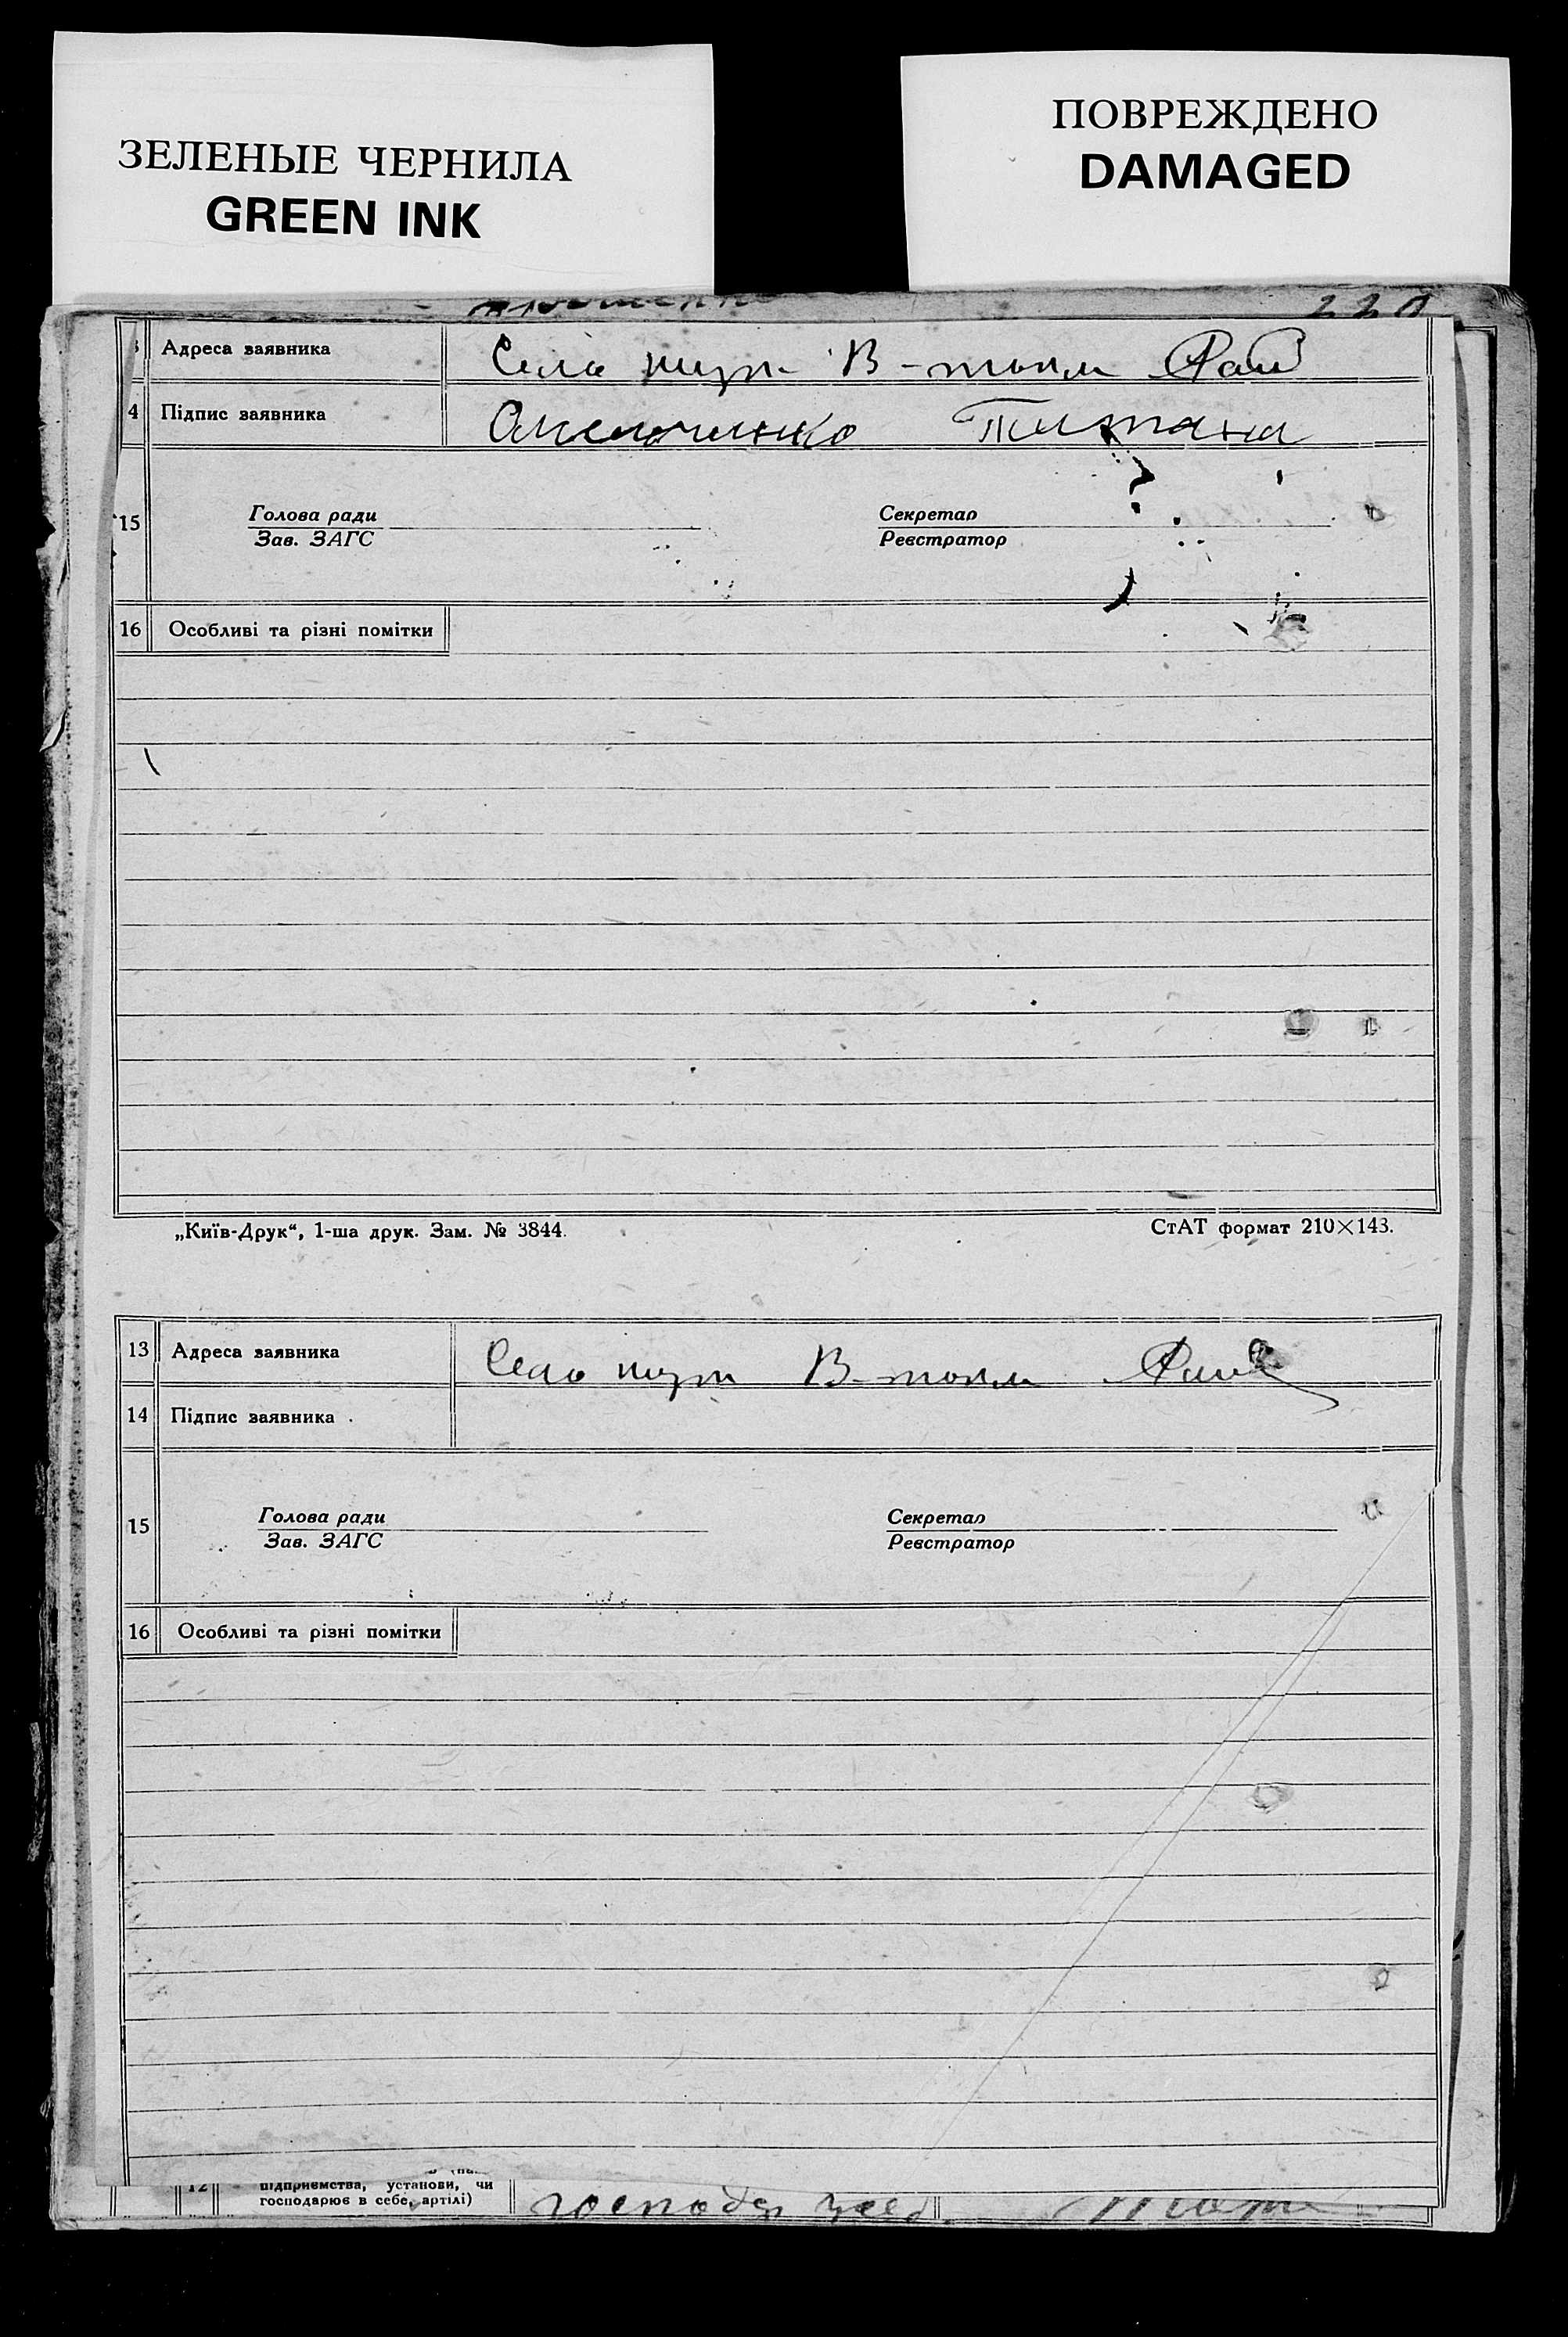 ЗЕЛЕНЫЕ ЧЕРНИЛА
GREEN INK
ПОВРЕЖДЕНО
DAMAGED
220
Адреса заявника
Село В- Рай
4 Підпис заявника
Омельченко
15 Голова ради
Зав. ЗАГС
Секретар
Реєстратор
16 Особливі та різні помітки
„Київ-Друк“, 1-ша друк. Зам. № 3844.
СтАТ формат 210×143.
13 Адреса заявника
Село В- Рай
14 Підпис заявника
15 Голова ради
Зав. ЗАГС
Секретар
Реєстратор
16 Особливі та різні помітки
12 підприємства, установи, чи
господарює в себе, артілі)